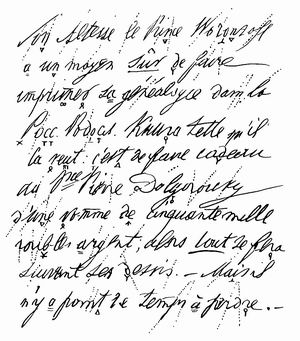 Son Altesse le Prince Woronzoff
a un moyen sûr de faire
imprimer sa généalogie dans la
Росс. Родосл. Книга telle qu'il
la veut. c'est de faire cadeau
au Pce Pierre Dolgorouky
d'une somme de cinquante mille
roubles argent, alors tout se fera
suivant ses désirs. — Mais il
n'y a point de temps à perdre. —